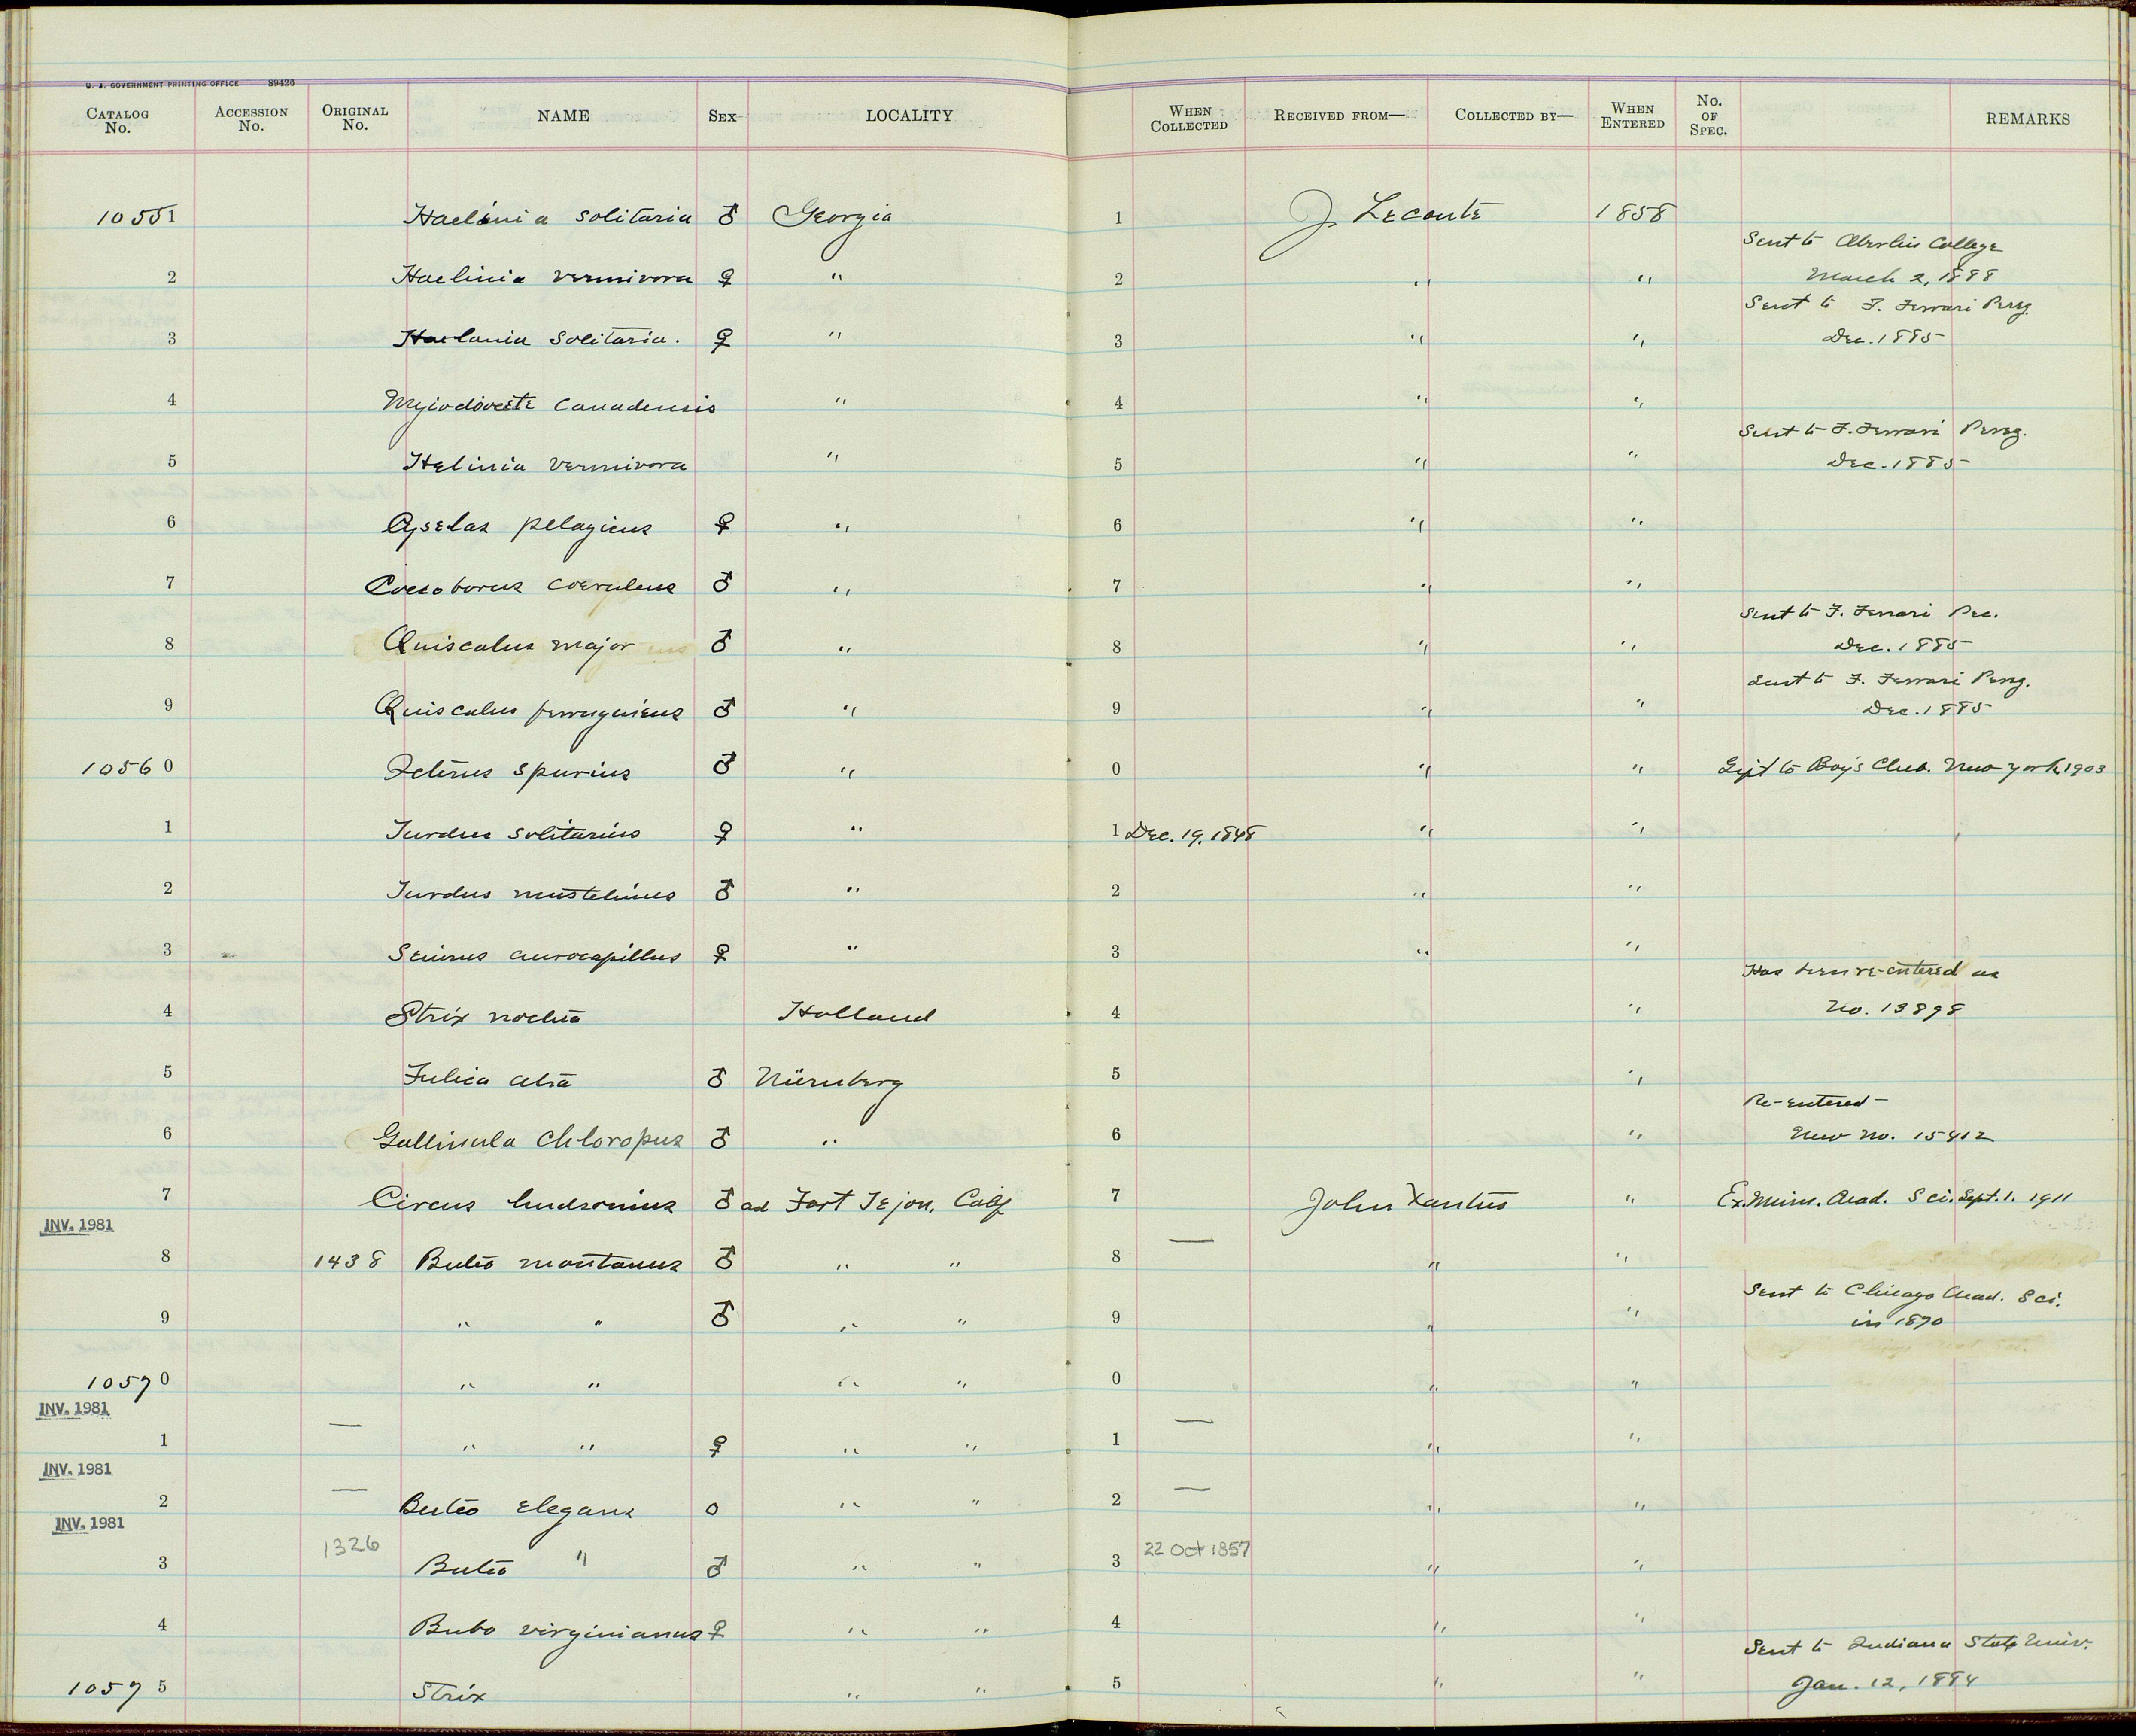 U. S. GOVERNMENT PRINTING OFFICE 89426
CATALOG No. ACCESSION No. ORIGINAL No. NAME SEX LOCALITY WHEN COLLECTED RECEIVED FROM— COLLECTED BY— WHEN ENTERED No. OF SPEC. REMARKS
10551 Haelinia solitaria ♂ Georgia 1 J. Leconte 1858
Sent to Oberlin College
2 Haelinia vermivora ♀ " 2 " " March 2, 1888
Sent to F. Ferrari Perez.
3 Haelania Solitaria. ♀ " 3 " " Dec. 1885
4 Myiodioctte Canadensis " 4 " "
Sent to F. Ferrari Perez.
5 Helinia vermivora " 5 " " Dec. 1885
6 Cypselas pelagicus ♀ " 6 " "
7 coeruleus ♂ " 7 " "
Sent to F. Ferrari Pec.
8 Quiscalus major ♂ " 8 " " Dec. 1885
Sent to F. Ferrari Perez.
9 Quiscalus ferrugineus ♂ " 9 " " Dec. 1885
10560 Icterus spurius ♂ " 0 " " Gift to Boy's Club. New York, 1903
1 Turdus solitarius ♀ " 1 Dec. 19, 1848 " "
2 Turdus mustelinus ♂ " 2 " "
3 Seiurus aurocapillus ♀ " 3 " "
Has been re-entered as
4 Strix noctua Holland 4 " No. 13898
5 Fulica atra ♂ Nürnberg 5 "
Re-entered —
6 Gallinula Chloropus ♂ " 6 " New No. 15412
7 Circus hudsonius ♂ ad Fort Tejon, Calif 7 John Xantus " Ex. Minn. Acad. Sci. Sept. 1. 1911
INV. 1981
8 1438 Buteo montanus ♂ " " 8 — " "
Sent to Chicago Acad. Sci.
9 " " ♂ " " 9 " " in 1870
10570 " " " " 0 " "
INV. 1981
1 — " " ♀ " " 1 — " "
INV. 1981
2 — Buteo elegans O " " 2 — " "
INV. 1981
3 1326 Buteo " ♂ " " 3 22 Oct 1857 " "
4 Bubo virginianus ♀ " " 4 " "
Sent to Indiana State Univ.
10575 Strix " " 5 " " Jan. 12, 1884